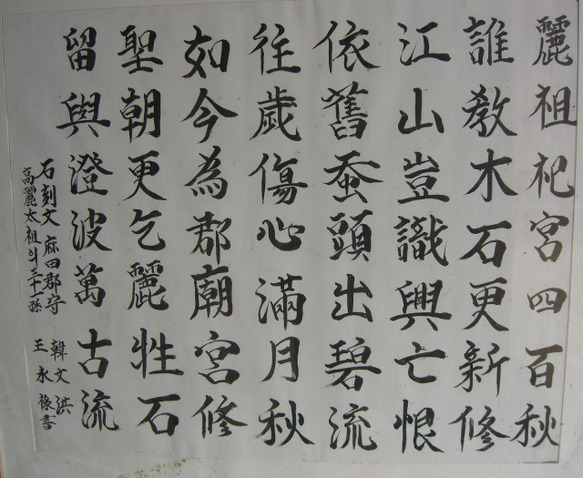 麗祖祀宮四百秋
誰教木石更新修
江山豈識興亡恨
依舊蚕頭出碧流
往歲傷心滿月秋
如今為郡廟宮修
聖朝更乞麗牲石
留與澄波萬古流
石刻文 麻田郡守 韓文洪
高麗太祖의三十一孫 王永祿書